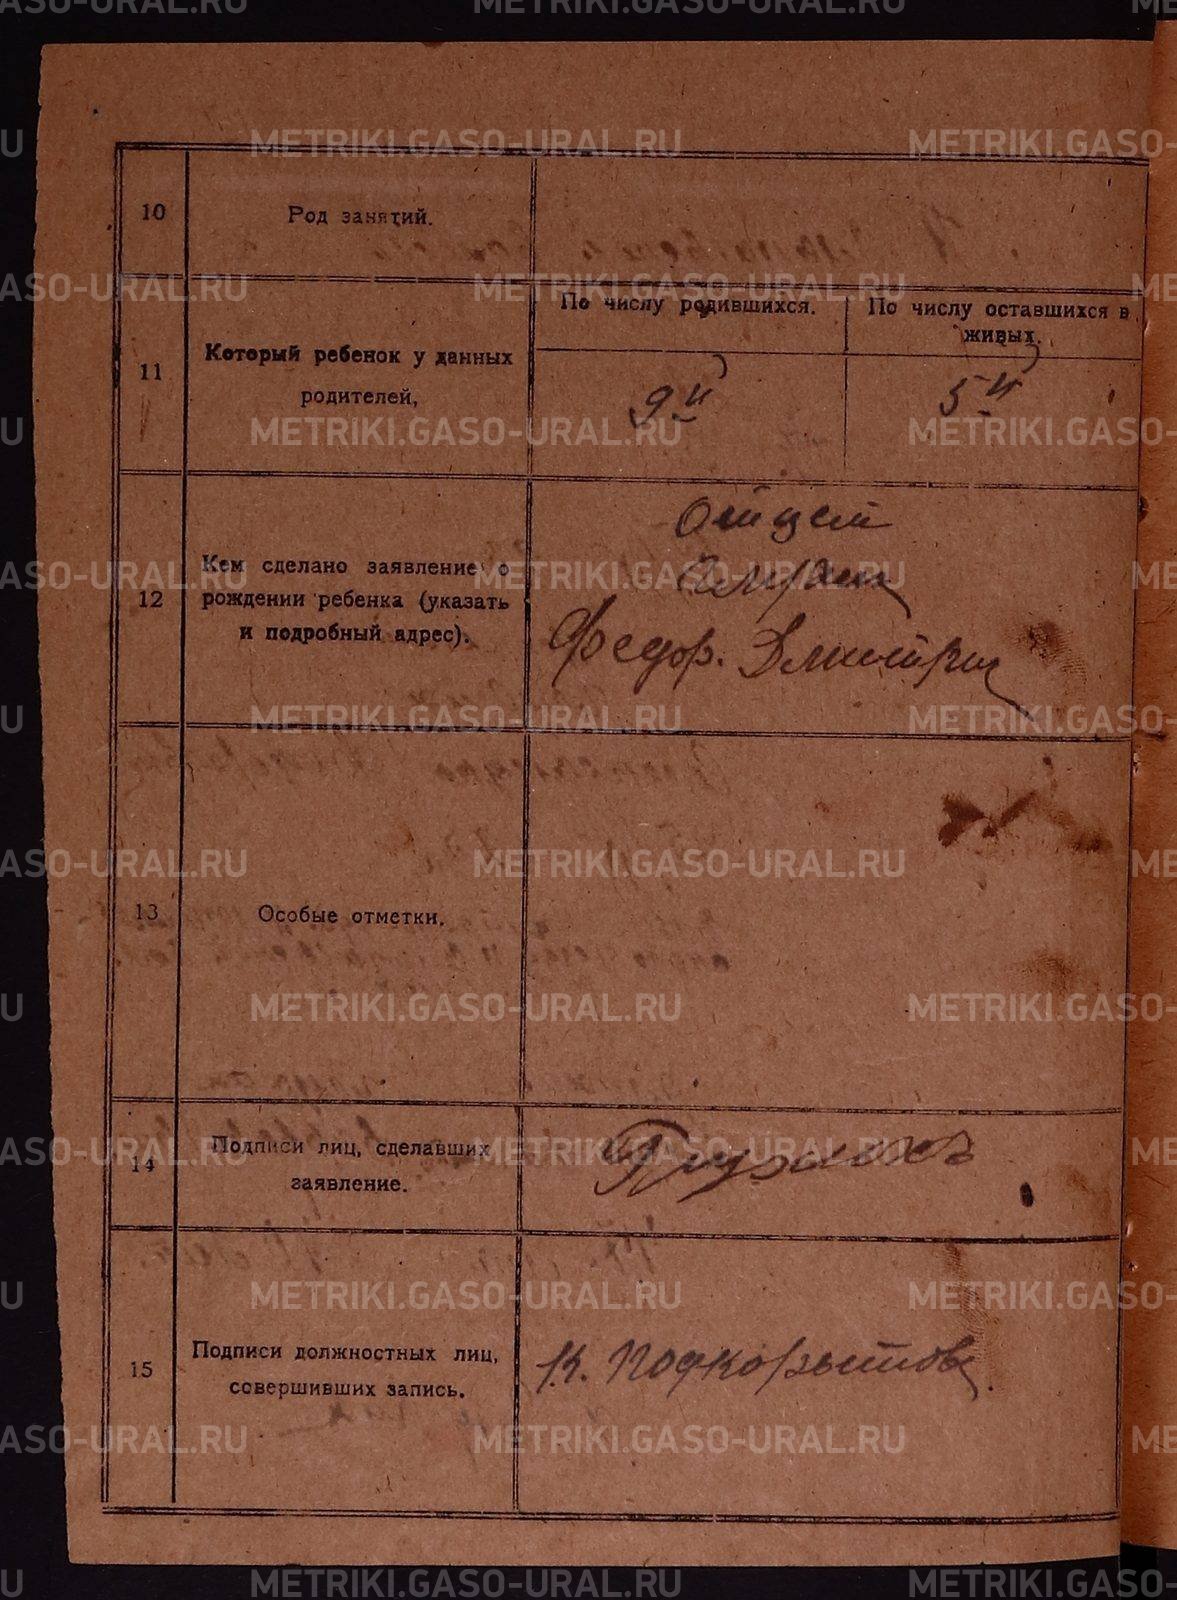 METRIKI.GASO-URAL.RU
10
Род занятий.
11
Который ребенок у данных
родителей,
По числу родившихся.
По числу оставшихся в
живых.
9й
5й
12
Кем сделано заявление о
рождении ребенка (указать
и подробный адрес).
Отцем
Федор. Дмитри
13
Особые отметки.
14
Подписи лиц, сделавших
заявление.
15
Подписи должностных лиц,
совершивших запись.
К. Подкорытов